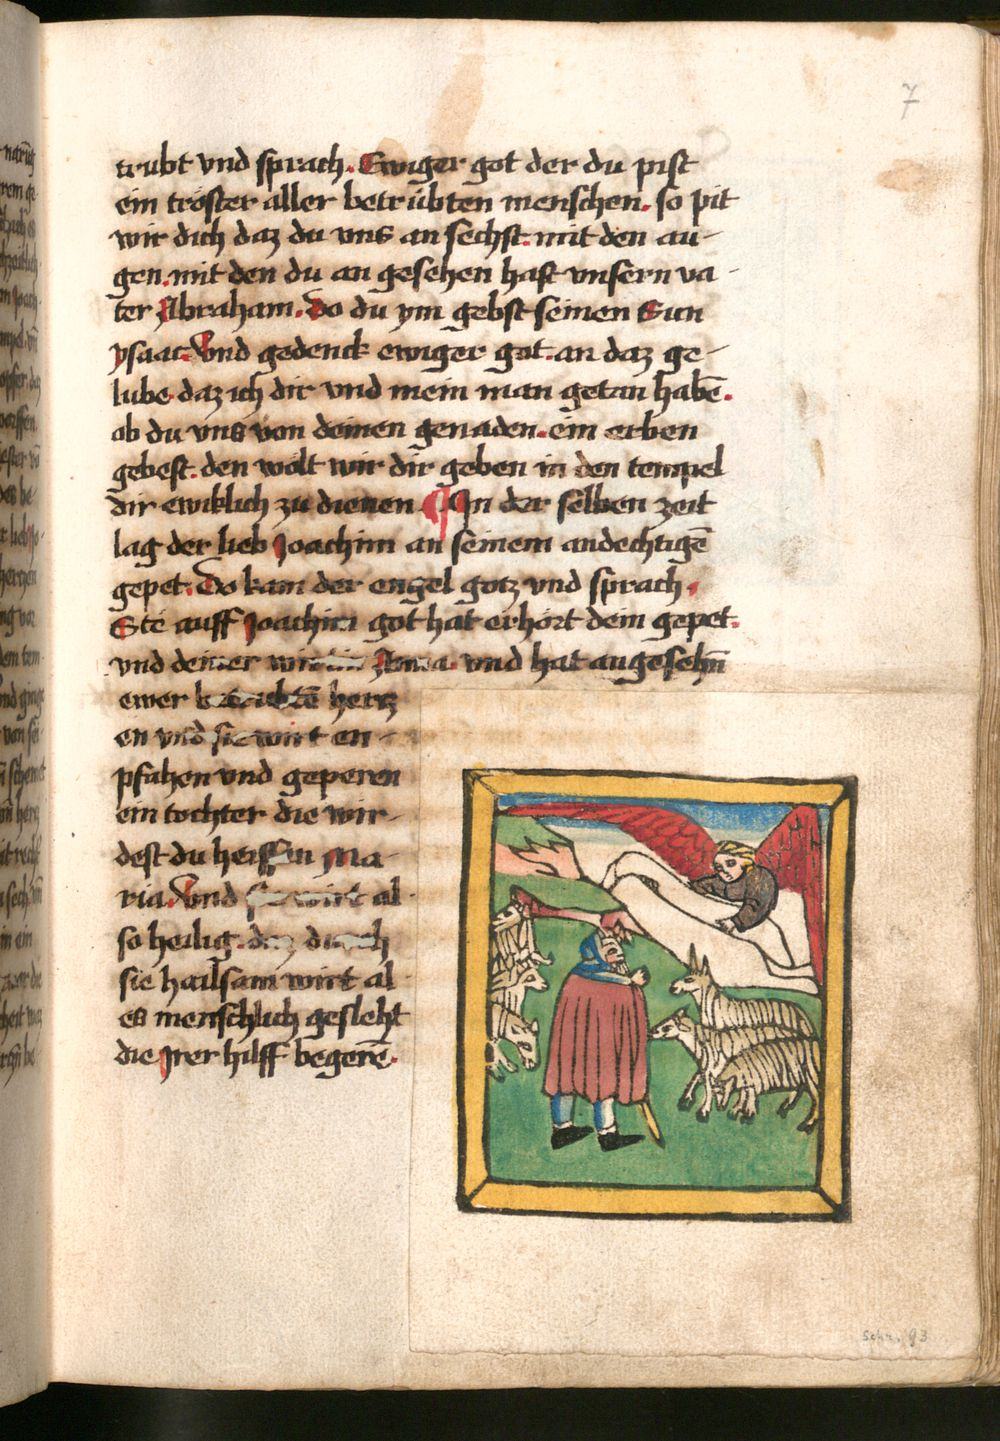 7
trubt vnd sprach. Ewiger got der du pist
ein tröster aller betrübten menschen. so pit
wir dich daz du vns an sechst. mit den au-
gen. mit den du an gesehen hast vnsern va-
ter Abraham. do du ym gebst seinen Sun
ysaac. Vnd gedenck ewiger got. an daz ge-
lube daz ich dir vnd mein man getan habē.
ob du vns von deinen genaden. ein erben
gebest. den wolt wir dir geben in den tempel
dir ewiklich zu dienen. ¶ In der selben zeit
lag der lieb Joachim an seinem andechtigē
gepet. Do kam der engel gotz vnd sprach.
Ste auff Joachim got hat erhört dein gepet.
vnd deiner Anna. vnd hat angesehn̄
ewer hertz
en vnd sie wirt en-
pfahen vnd geperen
ein tochter die wir-
dest du heissen Ma-
ria. Vnd sie wirt al-
so heilig. daz durch
sie hailsam wirt al-
es menschlich geslecht
die Jrer hilff begerē.
Schr. 93